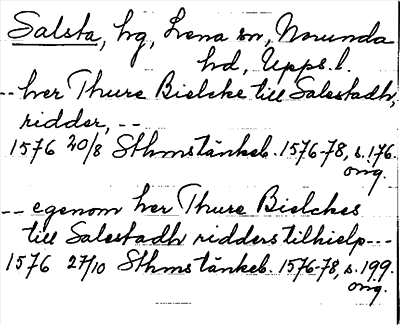 Salsta, hg, Lena sn, Norunda
hd, Upps. l.
-- her Thure Bielcke till Salestadh,
ridder, --
1576 20/8 Sthmstänkeb. 1576-78, s. 176.
orig.
-- egenom her Thure Bielckes
till Salestadh ridders tilhielp---
1576 27/10 Sthmstänkeb. 1576-78, s. 199.
orig.